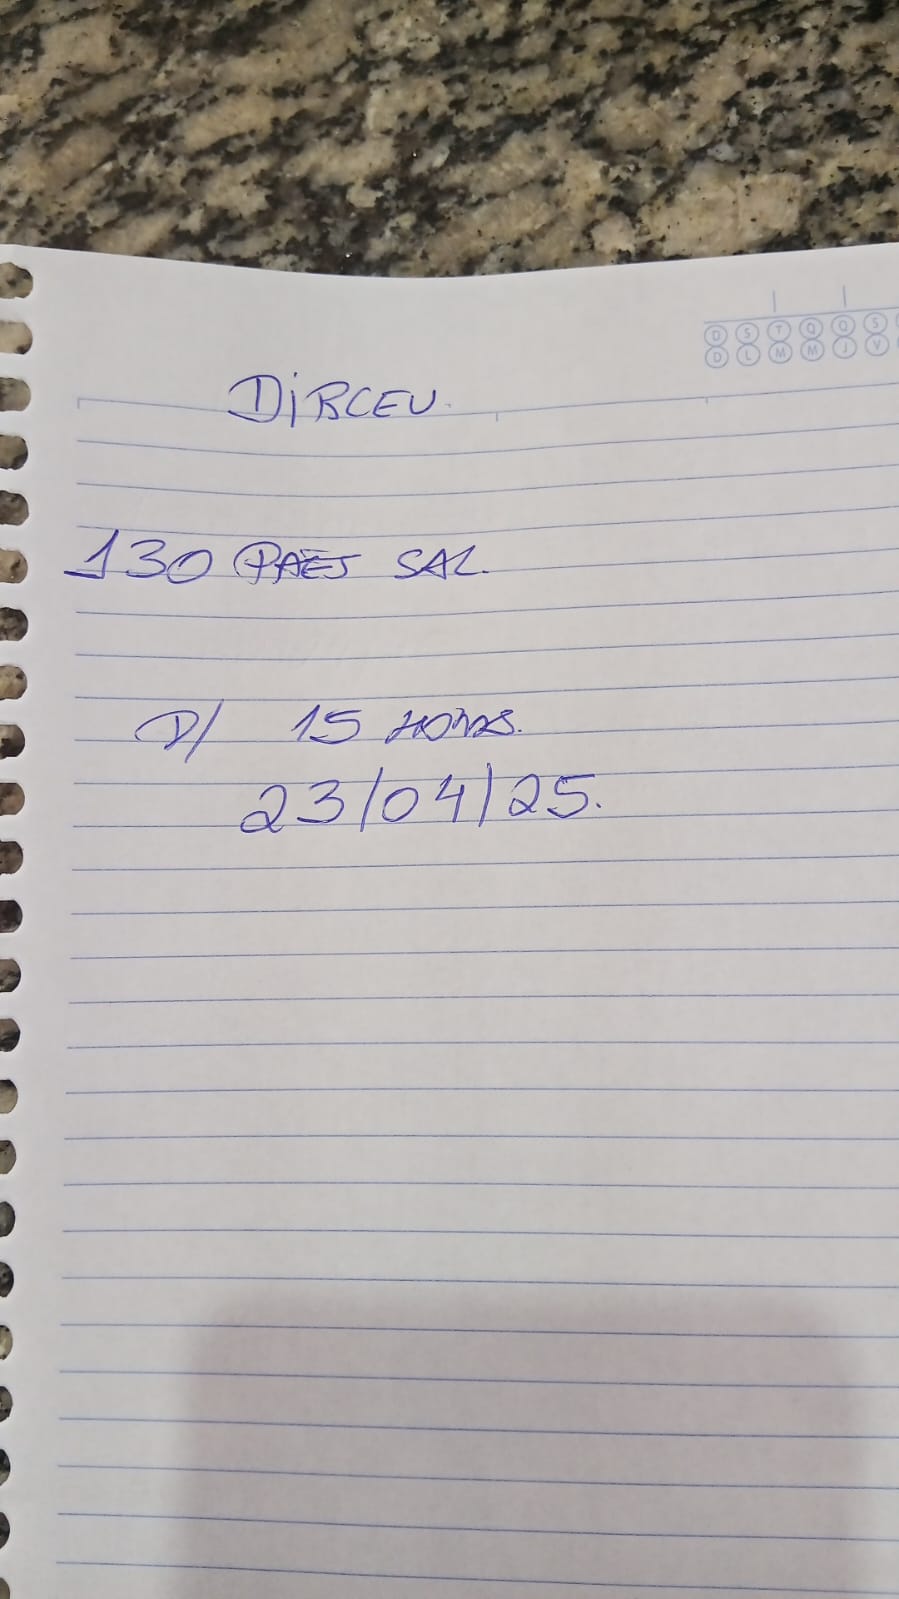 D S T Q Q S
D L M M J V
DIRCEU.
130 PÃES SAL.
P/ 15 HORAS.
23/04/25.